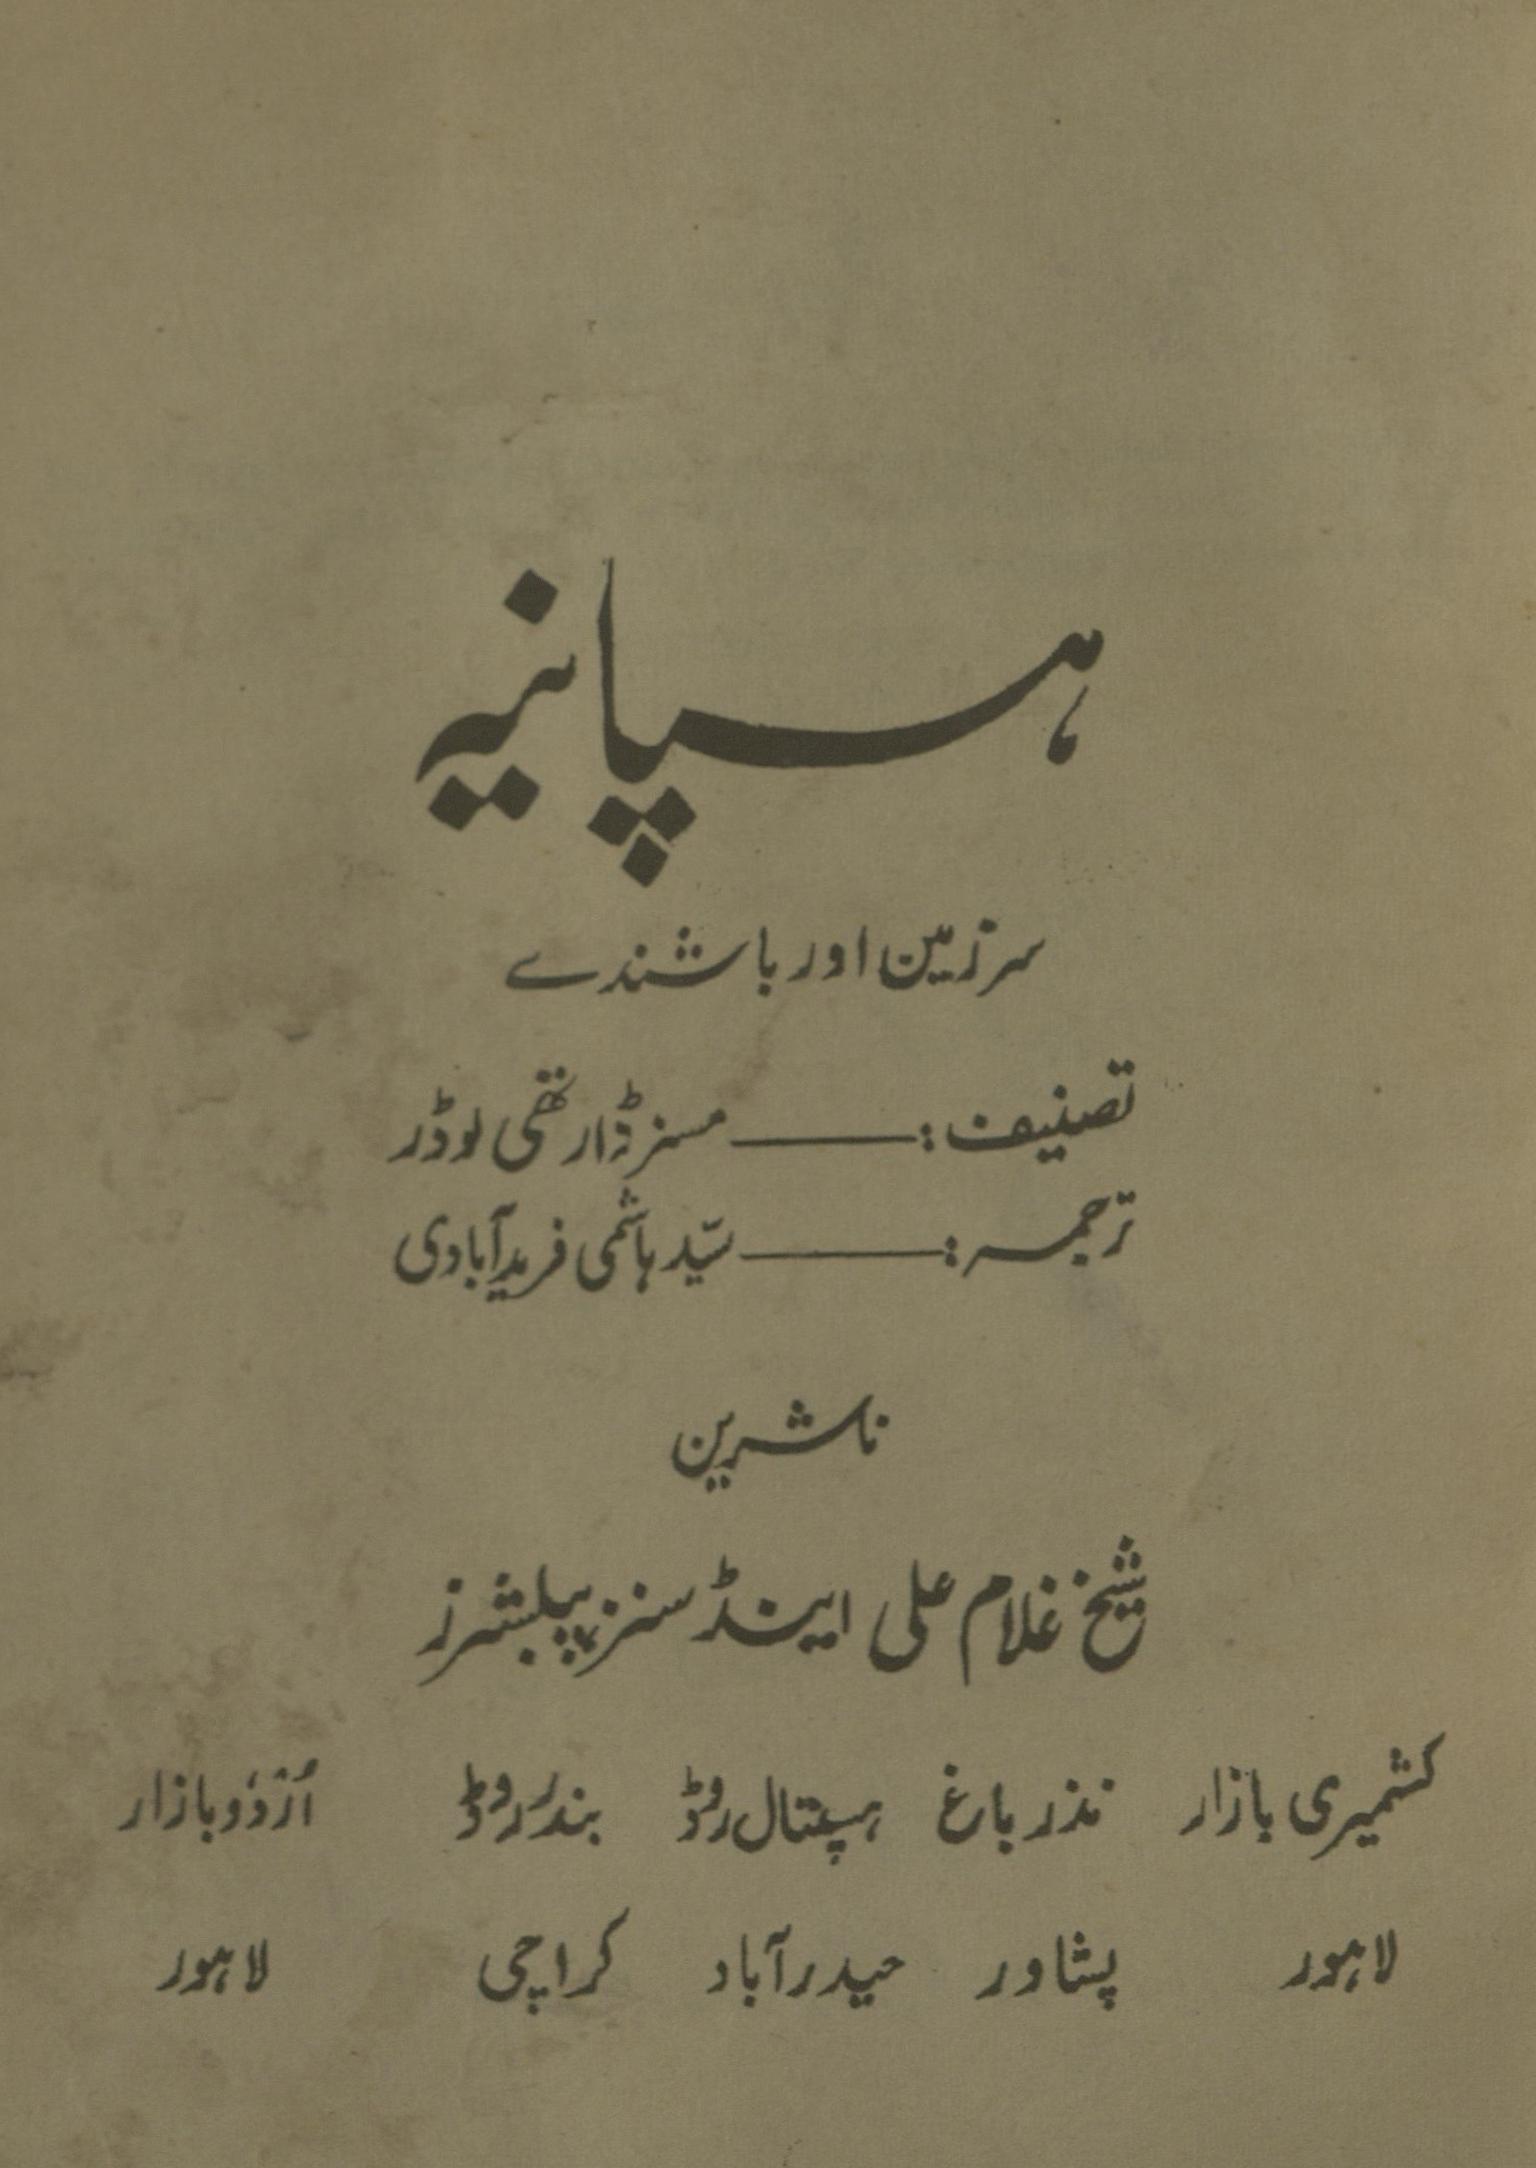 ہسپانیہ
سرزمین اور باشندے
تصنیف :——— مسز ڈارتھی لوڈر
ترجمہ :——— سیّد ہاشمی فریدآبادی
ناشرین
شیخ غلام علی اینڈ سنز پبلشرز
کشمیری بازار نذر باغ ہسپتال روڈ بندر روڈ اُردُو بازار
لاہور پشاور حیدرآباد کراچی لاہور